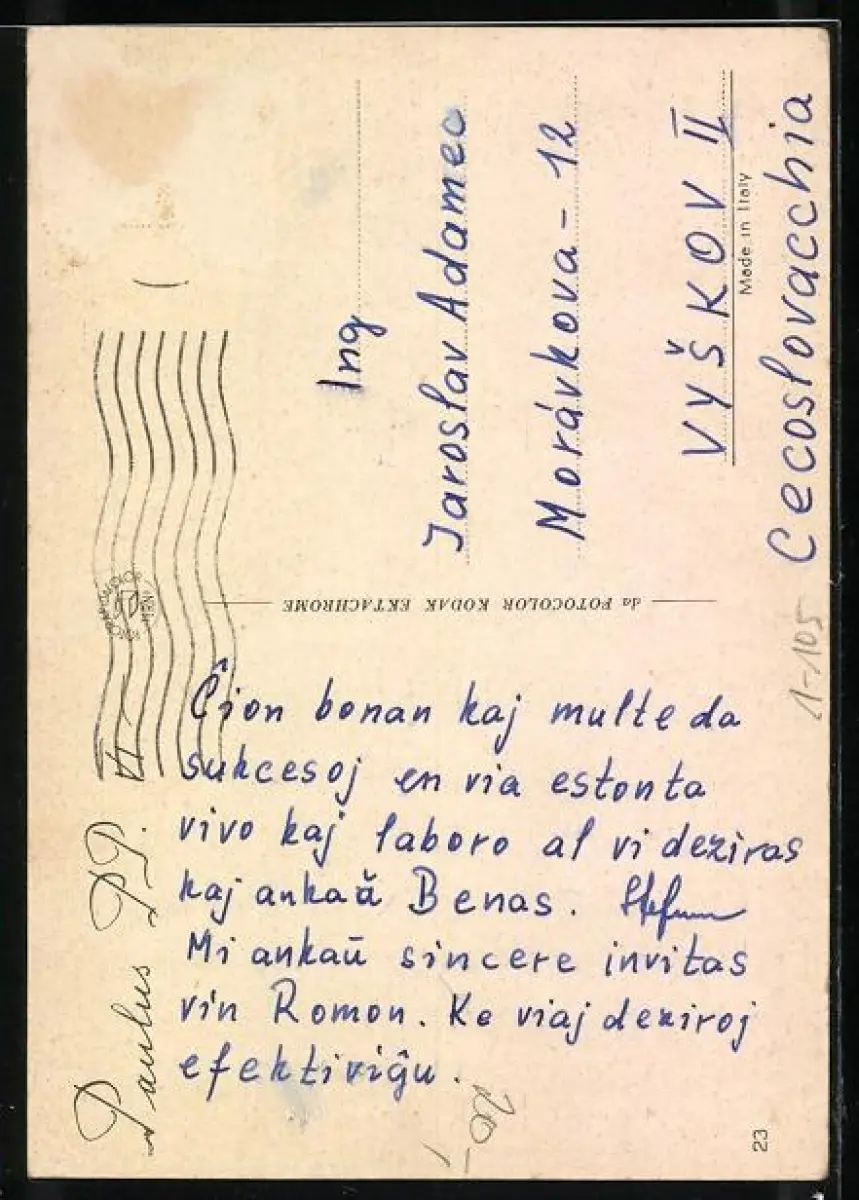 Ĉion bonan kaj multe da
sukcesoj en via estonta
vivo kaj laboro al vi deziras
kaj ankaŭ Benas. Stefano
Mi ankaŭ sincere invitas
vin Romon. Ke viaj deziroj
efektiviĝu.
Paulus PP. VI
da FOTOCOLOR KODAK EKTACHROME
Ing
Jaroslav Adamec
Morávkova - 12
VYŠKOV II
Made in Italy
Cecoslovacchia
1-105
20,-
23